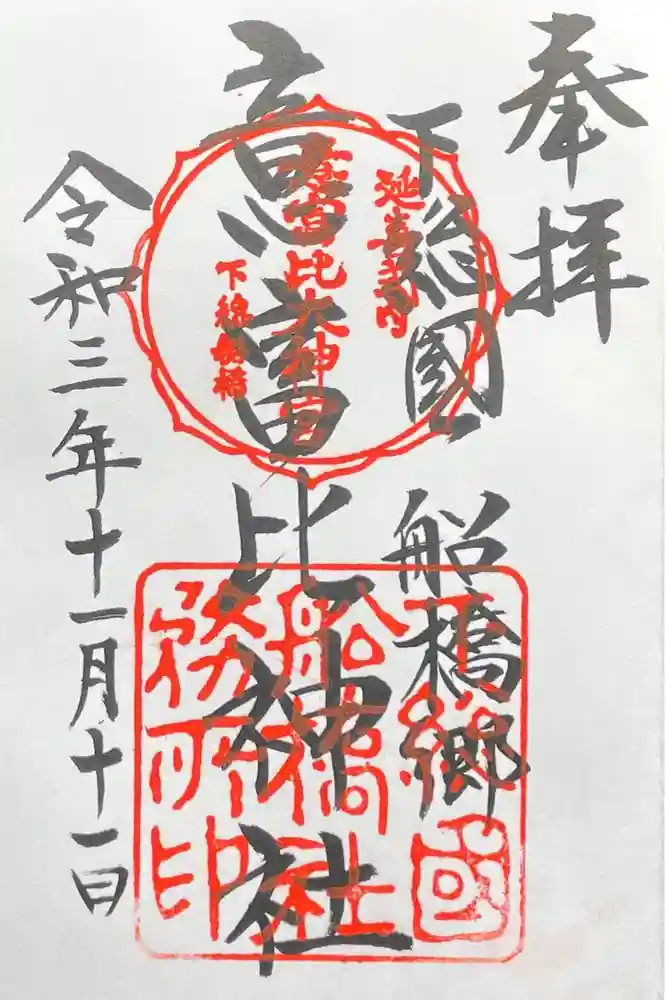 奉拝
下総國
船橋郷
意富比神社
令和三年十一月十一日
延喜式内
意富比大神宮
下総船橋
下総國
船橋大神
務所印